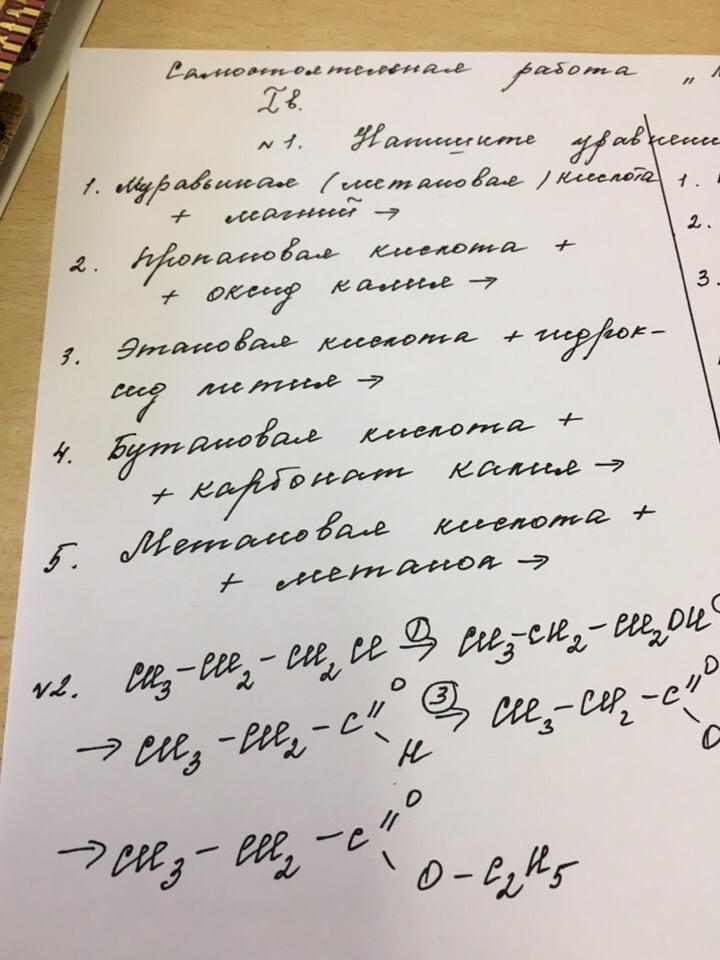 Самостоятельная работа „
I в.
№1. Напишите уравнени
1. Муравьиная (метановая) кислота
+ магний →
2. Пропановая кислота +
+ оксид калия →
3. Этановая кислота + гидрок-
сид лития →
4. Бутановая кислота +
+ карбонат калия →
5. Метановая кислота +
+ метанол →
1.
2.
3.
№2. CH3–CH2–CH2Cl ①→ CH3–CH2–CH2OH
→ CH3–CH2–C=O ③→ CH3–CH2–C=O
H O
→ CH3–CH2–C=O
O–C2H5